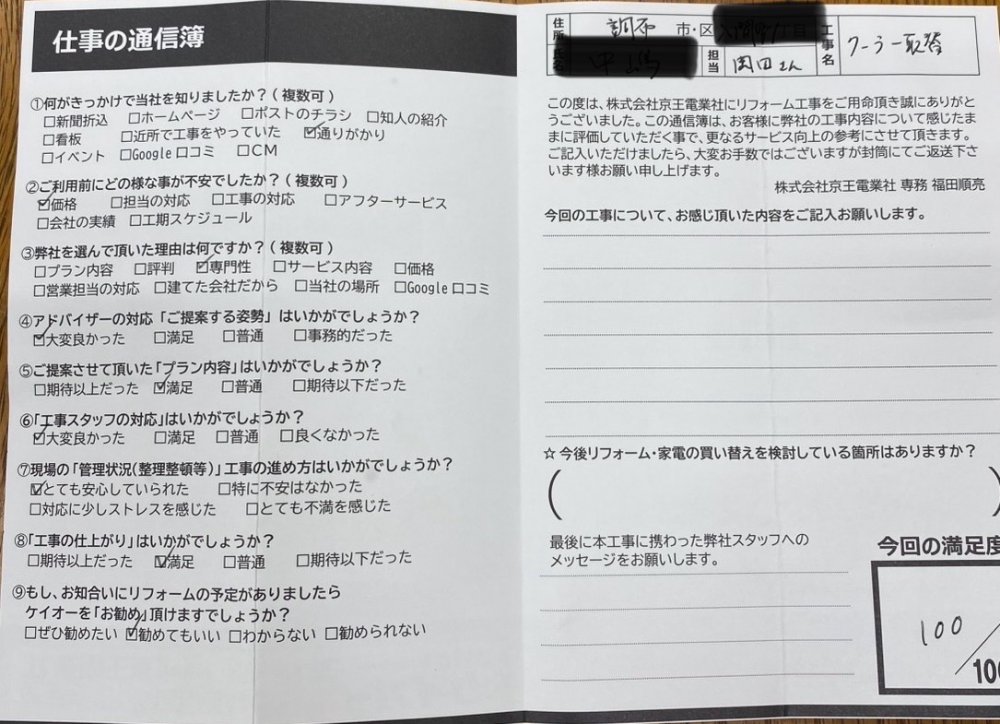 仕事の通信簿
①何がきっかけで当社を知りましたか？(複数可)
□新聞折込 □ホームページ □ポストのチラシ □知人の紹介
□看板 □近所で工事をやっていた ☑通りがかり
□イベント □Google口コミ □CM
②ご利用前にどの様な事が不安でしたか？(複数可)
☑価格 □担当の対応 □工事の対応 □アフターサービス
□会社の実績 □工期スケジュール
③弊社を選んで頂いた理由は何ですか？(複数可)
□プラン内容 □評判 ☑専門性 □サービス内容 □価格
□営業担当の対応 □建てた会社だから □当社の場所 □Google口コミ
④アドバイザーの対応「ご提案する姿勢」はいかがでしょうか？
☑大変良かった □満足 □普通 □事務的だった
⑤ご提案させて頂いた「プラン内容」はいかがでしょうか？
□期待以上だった ☑満足 □普通 □期待以下だった
⑥「工事スタッフの対応」はいかがでしょうか？
☑大変良かった □満足 □普通 □良くなかった
⑦現場の「管理状況(整理整頓等)」工事の進め方はいかがでしょうか？
☑とても安心していられた □特に不安はなかった
□対応に少しストレスを感じた □とても不満を感じた
⑧「工事の仕上がり」はいかがでしょうか？
□期待以上だった ☑満足 □普通 □期待以下だった
⑨もし、お知合いにリフォームの予定がありましたら
ケイオーを「お勧め」頂けますでしょうか？
□ぜひ勧めたい ☑勧めてもいい □わからない □勧められない
住所 調布 市・区 丁目
担当 岡田さん
工事名 クーラー取替
この度は、株式会社京王電業社にリフォーム工事をご用命頂き誠にありがと
うございました。この通信簿は、お客様に弊社の工事内容について感じたま
まに評価していただく事で、更なるサービス向上の参考にさせて頂きます。
ご記入いただけましたら、大変お手数ではございますが封筒にてご返送下さ
います様お願い申し上げます。
株式会社京王電業社 専務 福田順亮
今回の工事について、お感じ頂いた内容をご記入お願いします。
☆今後リフォーム・家電の買い替えを検討している箇所はありますか？
最後に本工事に携わった弊社スタッフへの
メッセージをお願いします。
今回の満足度
100
/100